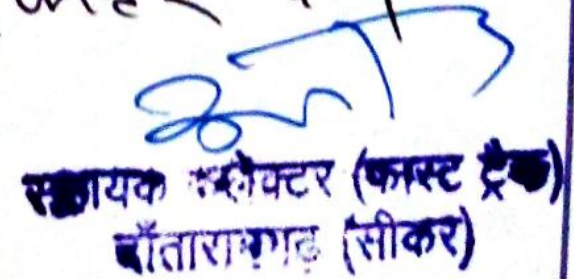 सहायक कलेक्टर (फास्ट ट्रैक)
दाँतारामगढ़ (सीकर)